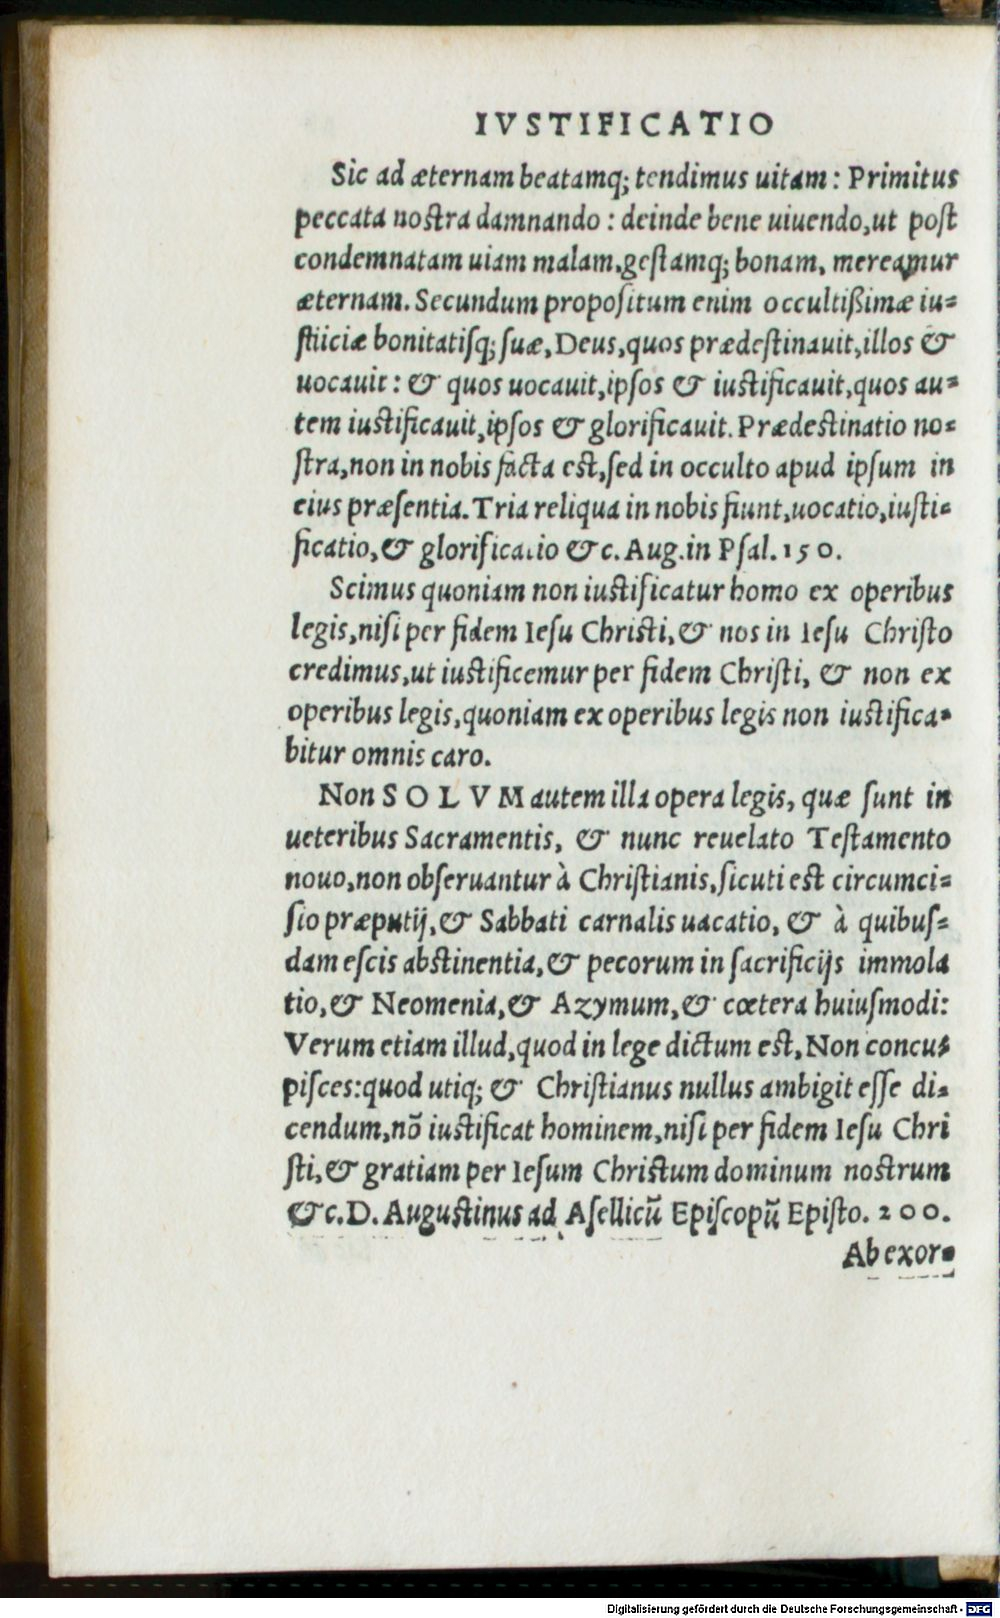 IVSTIFICATIO
Sic ad æternam beatamq; tendimus uitam: Primitus
peccata nostra damnando: deinde bene uiuendo, ut post
condemnatam uiam malam, gestamq; bonam, mereamur
æternam. Secundum propositum enim occultißimæ iu-
sticiæ bonitatisq; suæ, Deus, quos prædestinauit, illos &
uocauit: & quos uocauit, ipsos & iustificauit, quos au-
tem iustificauit, ipsos & glorificauit. Prædestinatio no-
stra, non in nobis facta est, sed in occulto apud ipsum in
eius præsentia. Tria reliqua in nobis fiunt, uocatio, iusti-
ficatio, & glorificatio &c. Aug. in Psal. 150.
Scimus quoniam non iustificatur homo ex operibus
legis, nisi per fidem Iesu Christi, & nos in Iesu Christo
credimus, ut iustificemur per fidem Christi, & non ex
operibus legis, quoniam ex operibus legis non iustifica-
bitur omnis caro.
Non SOLVM autem illa opera legis, quæ sunt in
ueteribus Sacramentis, & nunc reuelato Testamento
nouo, non obseruantur à Christianis, sicuti est circumci-
sio præputij, & Sabbati carnalis uacatio, & à quibus-
dam escis abstinentia, & pecorum in sacrificijs immola
tio, & Neomenia, & Azymum, & cœtera huiusmodi:
Verum etiam illud, quod in lege dictum est, Non concu-
pisces: quod utiq; & Christianus nullus ambigit esse di-
cendum, nõ iustificat hominem, nisi per fidem Iesu Chri
sti, & gratiam per Iesum Christum dominum nostrum
&c. D. Augustinus ad Asellicũ Episcopũ Episto. 200.
Ab exor-
Digitalisierung gefördert durch die Deutsche Forschungsgemeinschaft - DFG